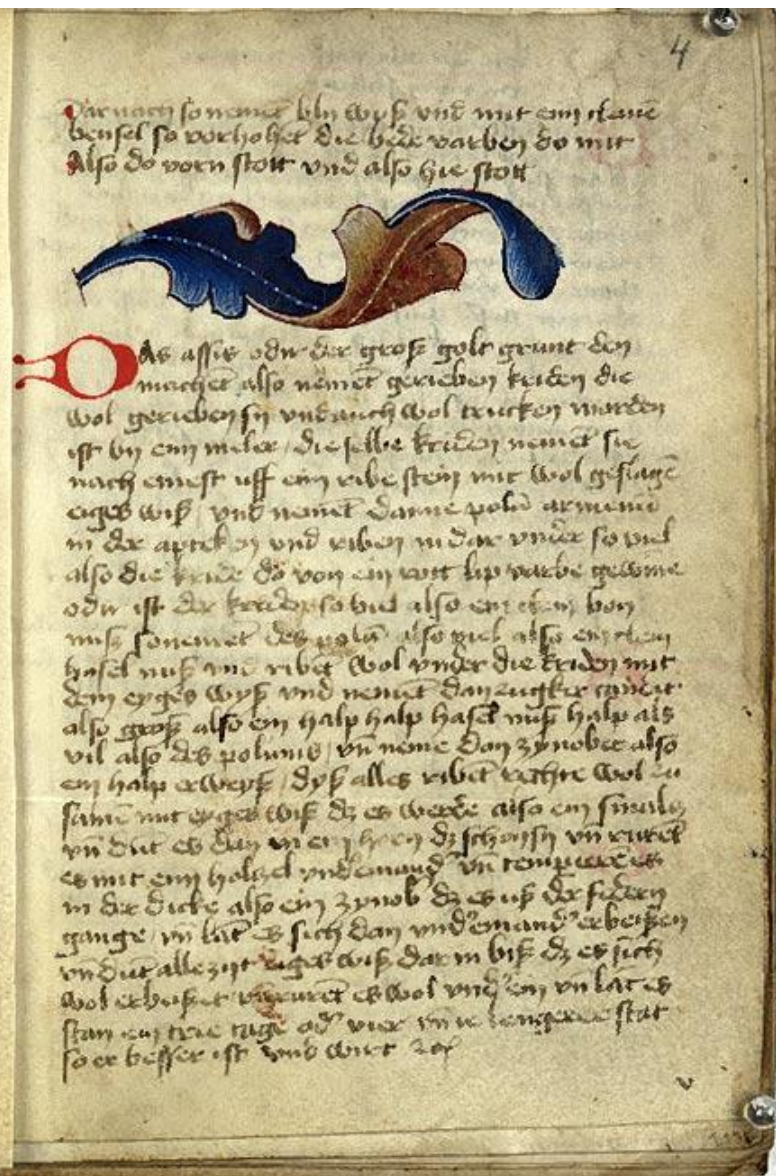 4
Darnach so nemet bly wyß vnd mit eim cleinē
bensel so vorhohet die bede varben do mit
Also do vorn stott vnd also hie stott
Das assis oder der groß golt grunt den
machēt also nemēt gerieben kriden die
wol gerieben sy vnd auch wol trucken worden
ist by eim meler / die selbe kriden nemēt sie
nach eniest uff ein ribe stein mit wol geslagē
eiges wiß / vnd nemēt danne polū armenū
in der apteken vnd riben in dar vnder so viel
also die kride do von ein rott lip varbe gewine
oder ist der kriden so viel also ein clein bon
nuß so nemēt des polū also viel also ein clein
hasel nuß vnd ribēt wol vnder die kriden mit
dem eyges wyß vnd nemēt dan zugker candit
also groß also ein halp halp hasel nuß halp als
vil also des poliums / vn̄ neme dan zynober also
ein halp erweyß / dyß alles ribēt rechte wol zu
samē mit eyges wiß dz es werde also ein smalcz
vn̄ dut es dan in ein horn dz schon sy vn̄ rurēt
es mit eim holczel vnd'emand' vn̄ temperierē es
in der dicke also ein zynob' dz es uß der federn
gange / vn̄ lāt es sich dan vnd'emand' erbeißen
vn̄ dut alle zyt eiges wiß dar in biß dz es sich
wol erbeißet vn̄ rurēt es wol vnd' ein vn̄ lāt es
stan ein trie tage od' vier vn̄ ie lengere es stat
so er besser ist vnd wirt